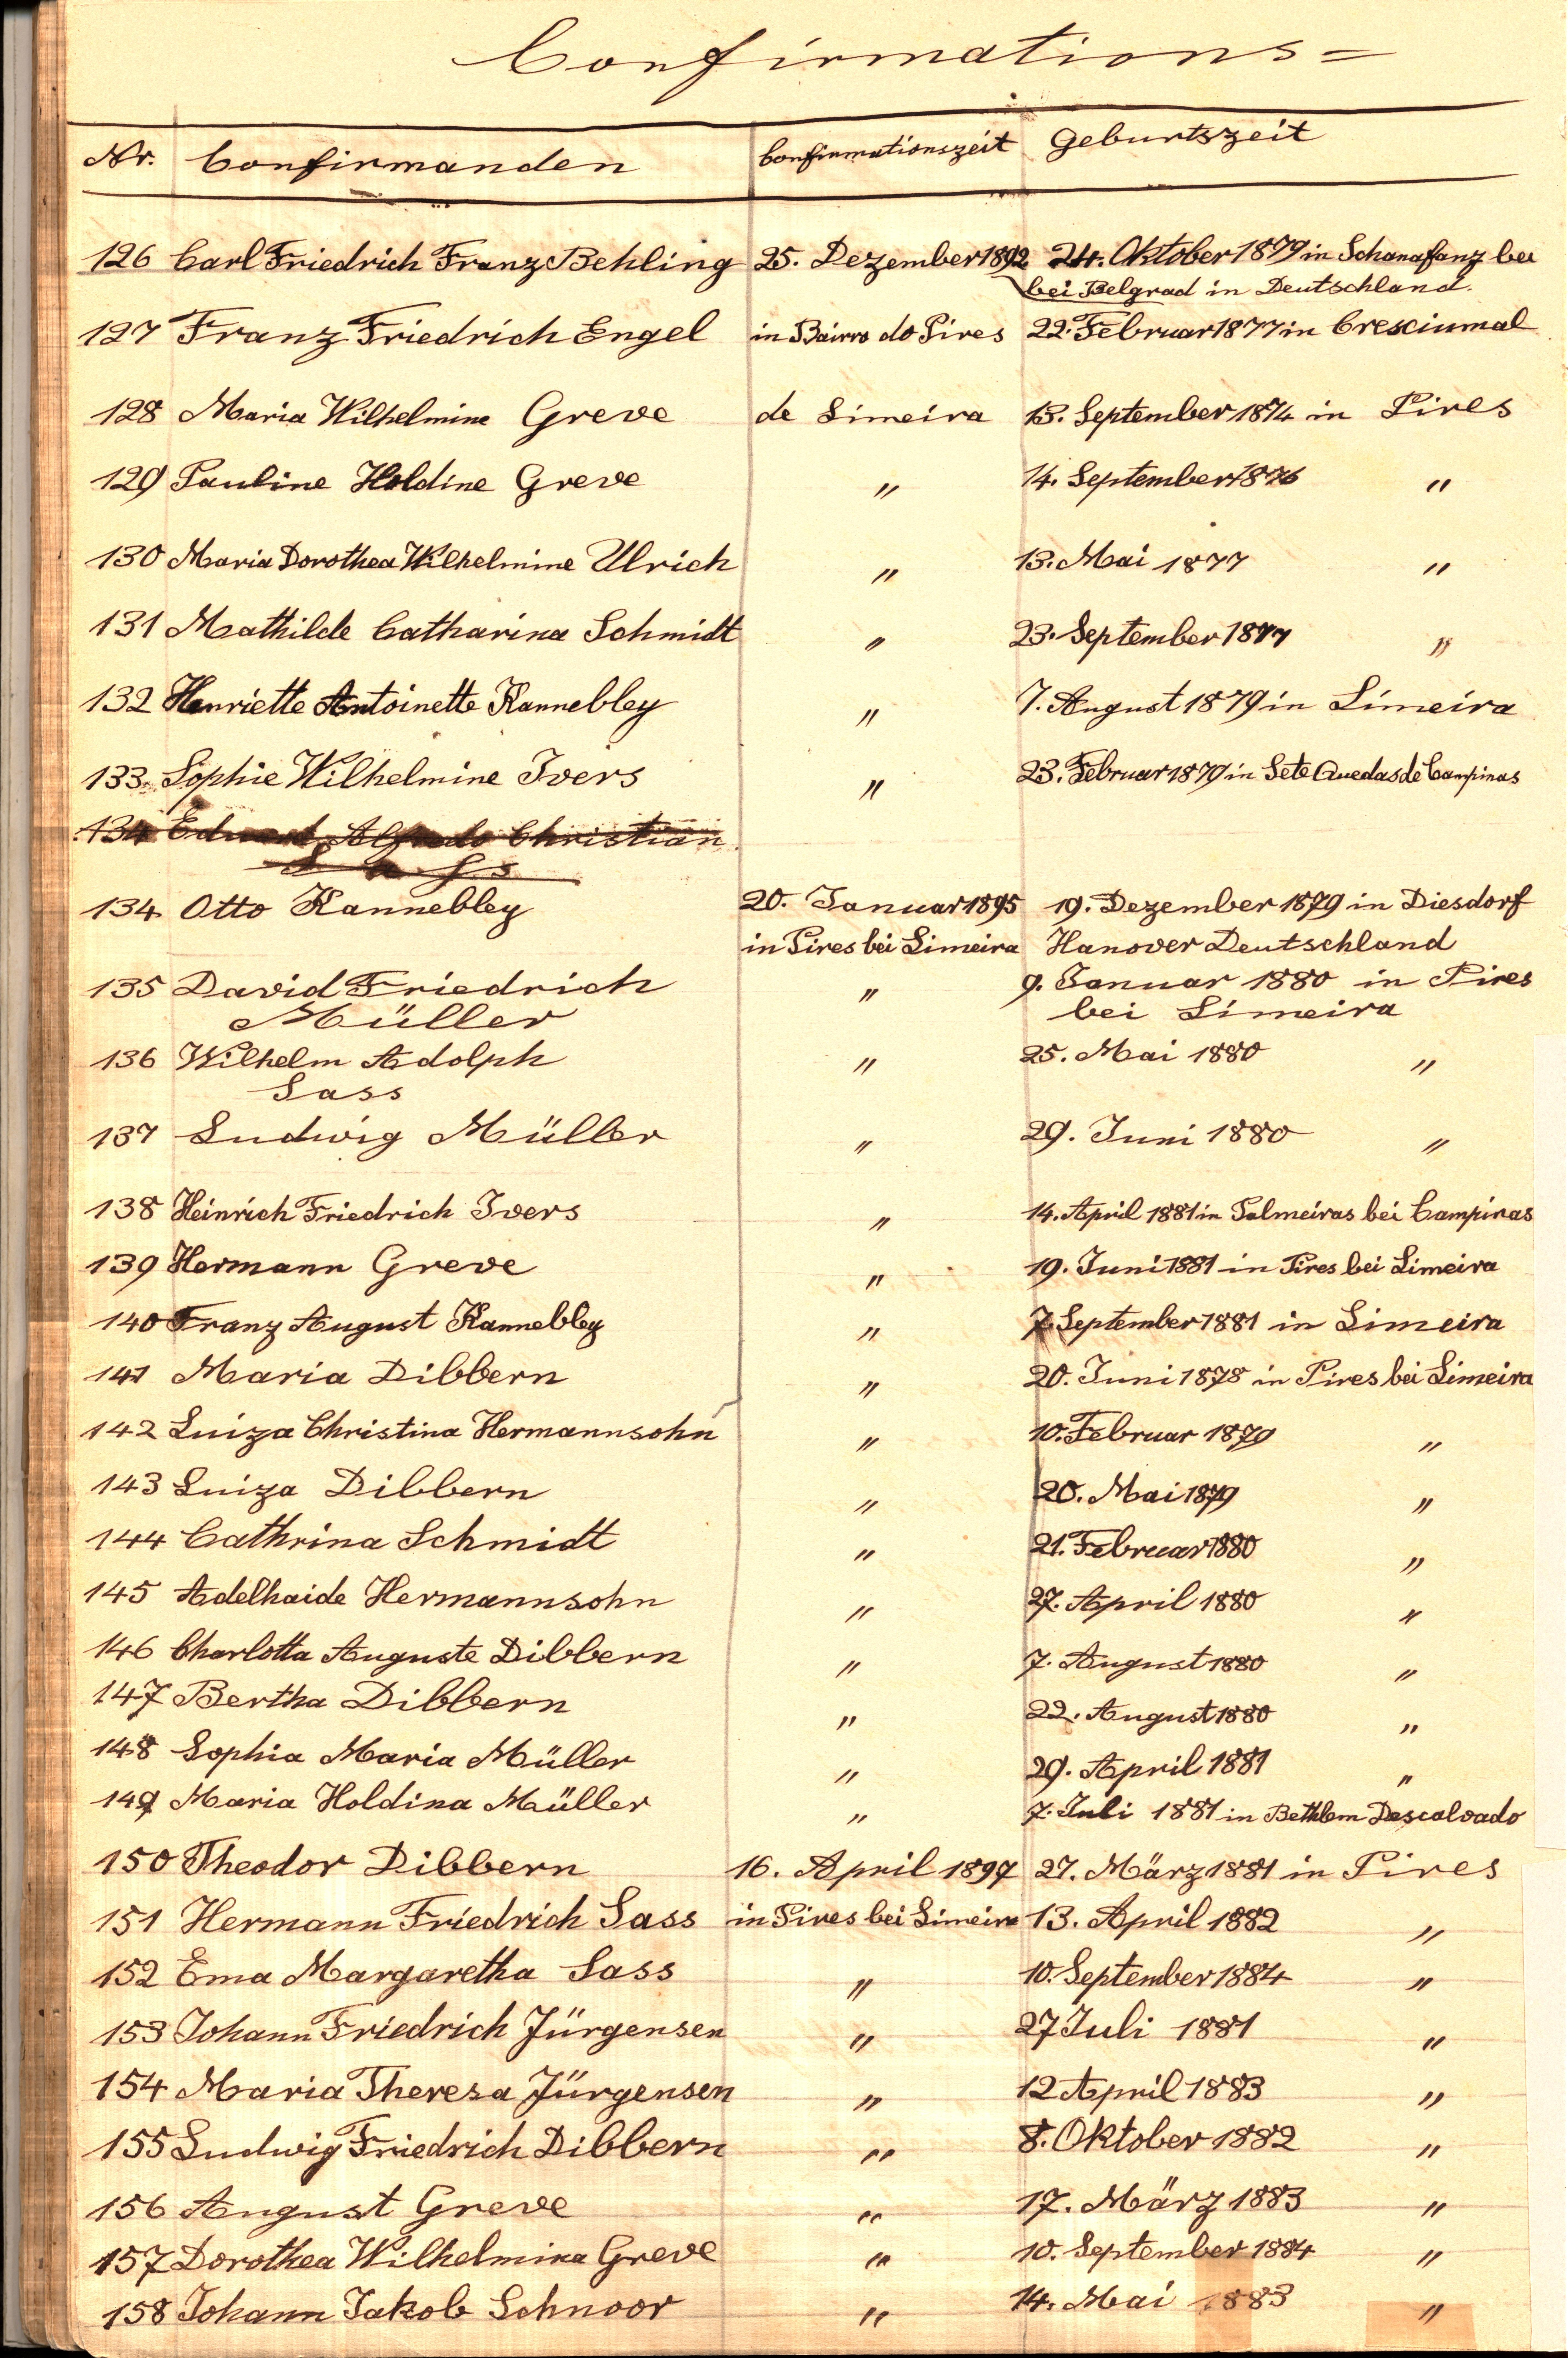 Confirmations=
Nr. Confirmanden Confirmationszeit Geburtszeit
126 Carl Friedrich Franz Behling 25. Dezember 1892 24. Oktober 1879 in Schanafanz bei
bei Belgrad in Deutschland.
127 Franz Friedrich Engel in Bairro do Pires 22. Februar 1877 in Cresciumal
128 Maria Wilhelmine Greve de Limeira 13. September 1874 in Pires
129 Pauline Holdine Greve " 14. September 1876 "
130 Maria Dorothea Wilhelmine Ulrich " 13. Mai 1877 "
131 Mathilde Catharina Schmidt " 23. September 1877 "
132 Henriette Antoinette Kannebley " 7. August 1879 in Limeira
133. Sophie Wilhelmine Ivers " 23. Februar 1879 in Sete Quedas de Campinas
134 Eduard Alfredo Christian
Sass
134 Otto Kannebley 20. Januar 1895 19. Dezember 1879 in Diesdorf
in Pires bei Limeira Hanover Deutschland
135 David Friedrich " 9. Januar 1880 in Pires
Müller bei Limeira
136 Wilhelm Adolph " 25. Mai 1880 "
Sass
137 Ludwig Müller " 29. Juni 1880 "
138 Heinrich Friedrich Ivers " 14. April 1881 in Palmeiras bei Campinas
139 Hermann Greve " 19. Juni 1881 in Pires bei Limeira
140 Franz August Kannebley " 7. September 1881 in Limeira
141 Maria Dibbern " 20. Juni 1878 in Pires bei Limeira
142 Luiza Christina Hermannsohn " 10. Februar 1879 "
143 Luiza Dibbern " 20. Mai 1879 "
144 Cathrina Schmidt " 21. Februar 1880 "
145 Adelhaide Hermannsohn " 27. April 1880 "
146 Charlotta Auguste Dibbern " 7. August 1880 "
147 Bertha Dibbern " 22. August 1880 "
148 Sophia Maria Müller " 29. April 1881 "
149 Maria Holdina Müller " 7. Juli 1881 in Bethlem Descalvado
150 Theodor Dibbern 16. April 1897 27. März 1881 in Pires
151 Hermann Friedrich Sass in Pires bei Limeira 13. April 1882 "
152 Ema Margaretha Sass " 10. September 1884 "
153 Johann Friedrich Jürgensen " 27 Juli 1881 "
154 Maria Theresa Jürgensen " 12 April 1883 "
155 Ludwig Friedrich Dibbern " 8. Oktober 1882 "
156 August Greve " 17. März 1883 "
157 Dorothea Wilhelmina Greve " 10. September 1884 "
158 Johann Jakob Schnoor " 14. Mai 1883 "